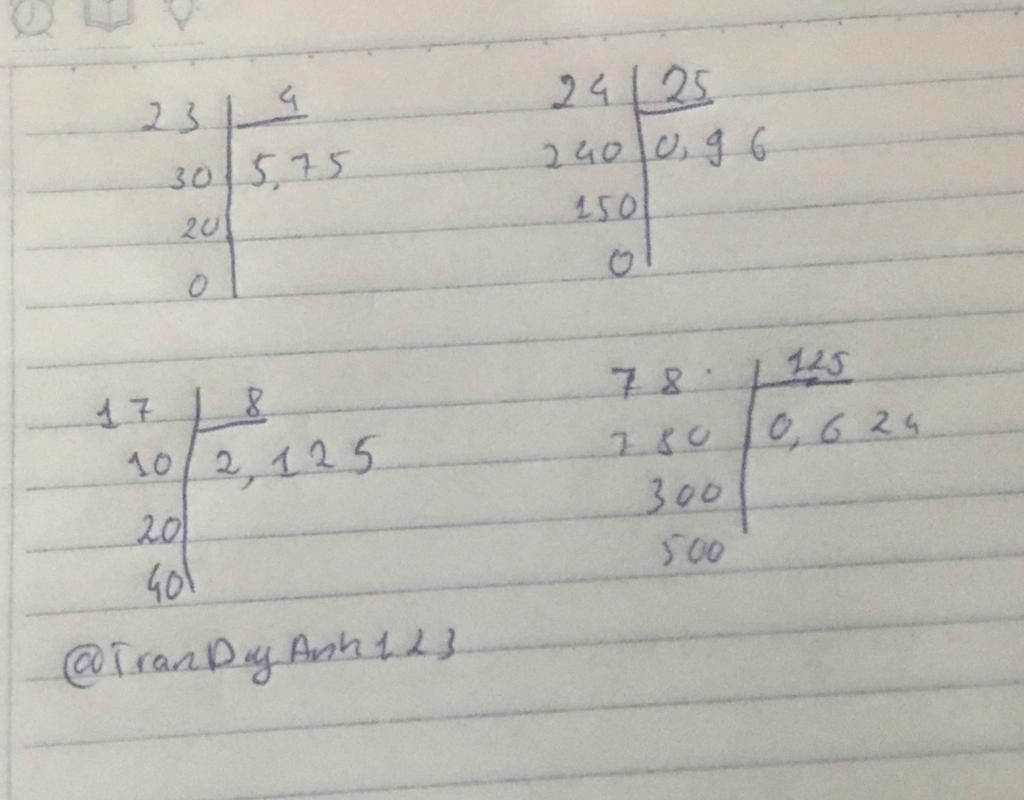 23 4
30 5,75
20
0
24 25
240 0,96
150
0
17 8
10 2,125
20
40
78 125
780 0,624
300
500
@TranDuyAnh123